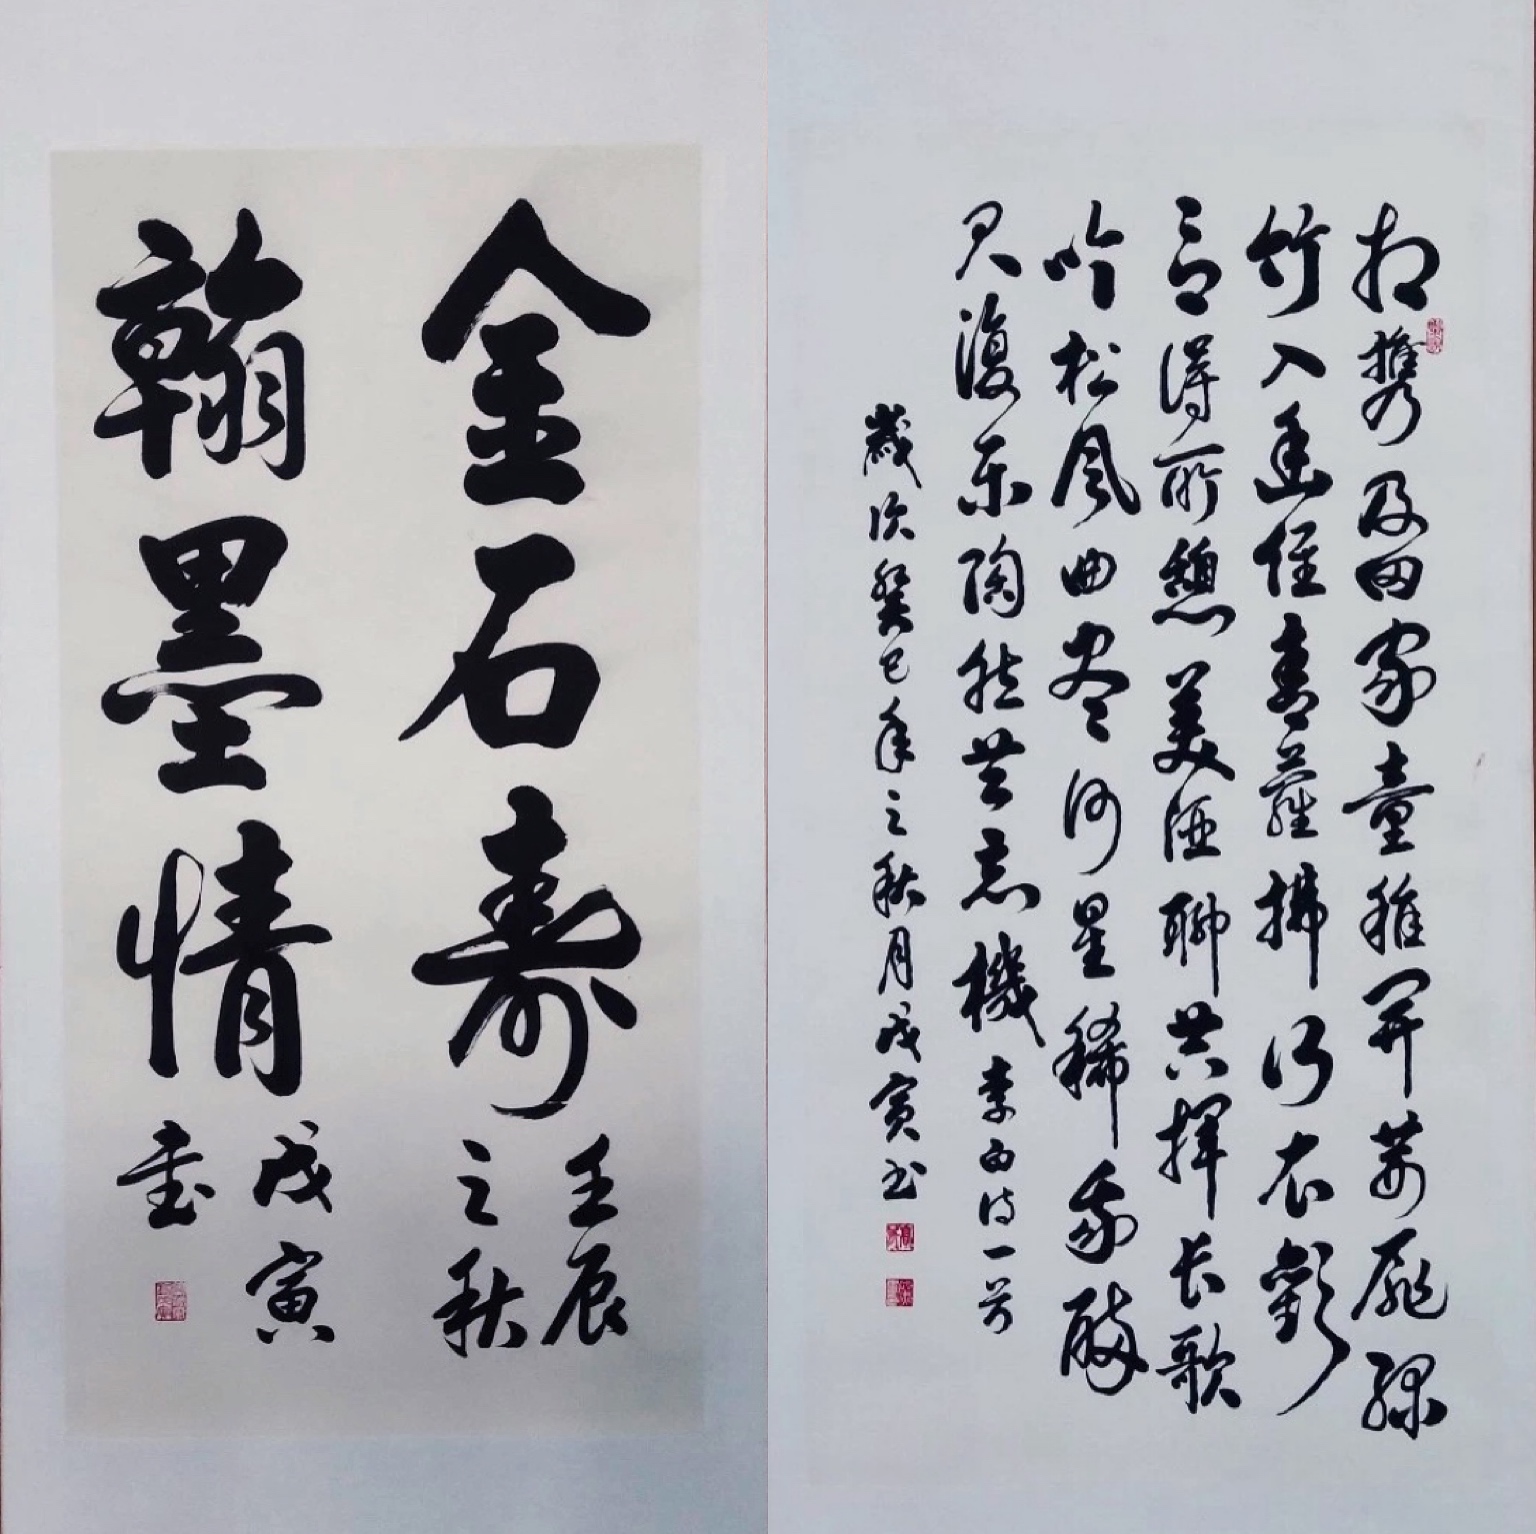 金石寿
壬辰
之秋
翰墨情
戊寅
書
相携及田家童稚开荆扉绿
竹入幽径青蘿拂行衣歡
言得所憩美酒聊共揮长歌
吟松风曲尽河星稀我醉
君復乐陶然共忘機 李白诗一首
歲次癸巳年之秋月戊寅书